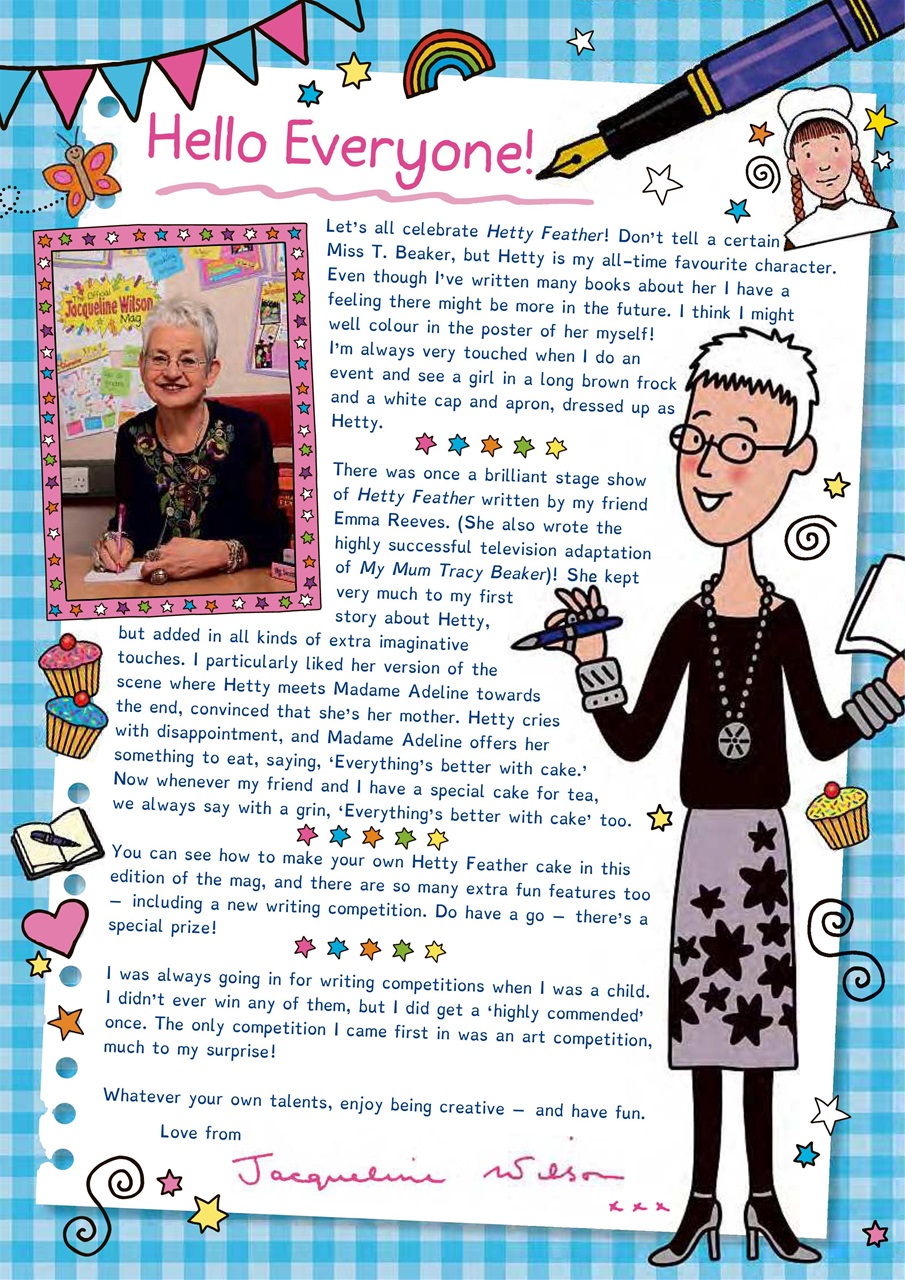 Hello Everyone!
The Official
Jacqueline Wilson
Mag
Let's all celebrate Hetty Feather! Don't tell a certain
Miss T. Beaker, but Hetty is my all-time favourite character.
Even though I've written many books about her I have a
feeling there might be more in the future. I think I might
well colour in the poster of her myself!
I'm always very touched when I do an
event and see a girl in a long brown frock
and a white cap and apron, dressed up as
Hetty.
There was once a brilliant stage show
of Hetty Feather written by my friend
Emma Reeves. (She also wrote the
highly successful television adaptation
of My Mum Tracy Beaker)! She kept
very much to my first
story about Hetty,
but added in all kinds of extra imaginative
touches. I particularly liked her version of the
scene where Hetty meets Madame Adeline towards
the end, convinced that she's her mother. Hetty cries
with disappointment, and Madame Adeline offers her
something to eat, saying, 'Everything's better with cake.'
Now whenever my friend and I have a special cake for tea,
we always say with a grin, 'Everything's better with cake' too.
You can see how to make your own Hetty Feather cake in this
edition of the mag, and there are so many extra fun features too
– including a new writing competition. Do have a go – there's a
special prize!
I was always going in for writing competitions when I was a child.
I didn't ever win any of them, but I did get a 'highly commended'
once. The only competition I came first in was an art competition,
much to my surprise!
Whatever your own talents, enjoy being creative – and have fun.
Love from
Jacqueline Wilson
x x x